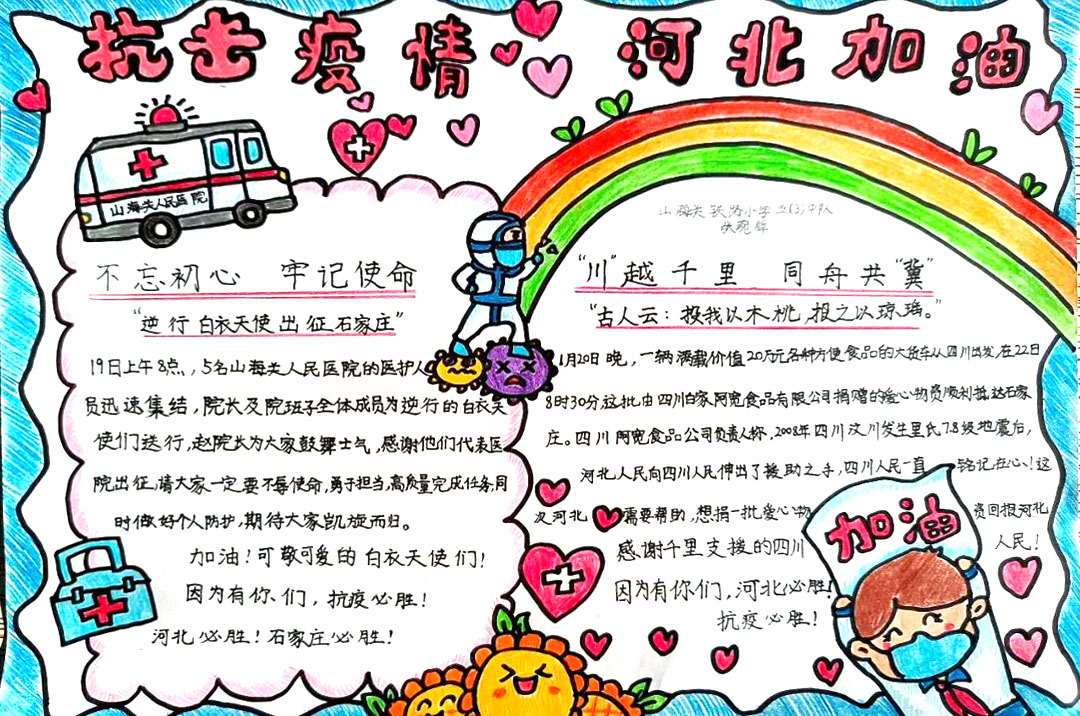 抗击疫情 河北加油
山海关人民医院
不忘初心 牢记使命
“逆行白衣天使出征石家庄”
19日上午8点，5名山海关人民医院的医护人
员迅速集结，院长及院班子全体成员为逆行的白衣天
使们送行，赵院长为大家鼓舞士气，感谢他们代表医
院出征，请大家一定要不辱使命，勇于担当，高质量完成任务，同
时做好个人防护，期待大家凯旋而归。
加油！可敬可爱的白衣天使们！
因为有你们，抗疫必胜！
河北必胜！石家庄必胜！
山海关铁路小学五(3)中队
“川”越千里 同舟共“冀”
“古人云：投我以木桃，报之以琼瑶。”
1月20日晚，一辆满载价值20万元各种方便食品的大货车从四川出发，在22日
8时30分，这批由四川白家阿宽食品有限公司捐赠的爱心物资顺利抵达石家
庄。四川阿宽食品公司负责人称，2008年四川汶川发生里氏7.8级地震后，
河北人民向四川人民伸出了援助之手，四川人民一直铭记在心！这
次河北需要帮助，想捐一批爱心物资回报河北
人民！
感谢千里支援的四川
因为有你们，河北必胜！
抗疫必胜！
加油